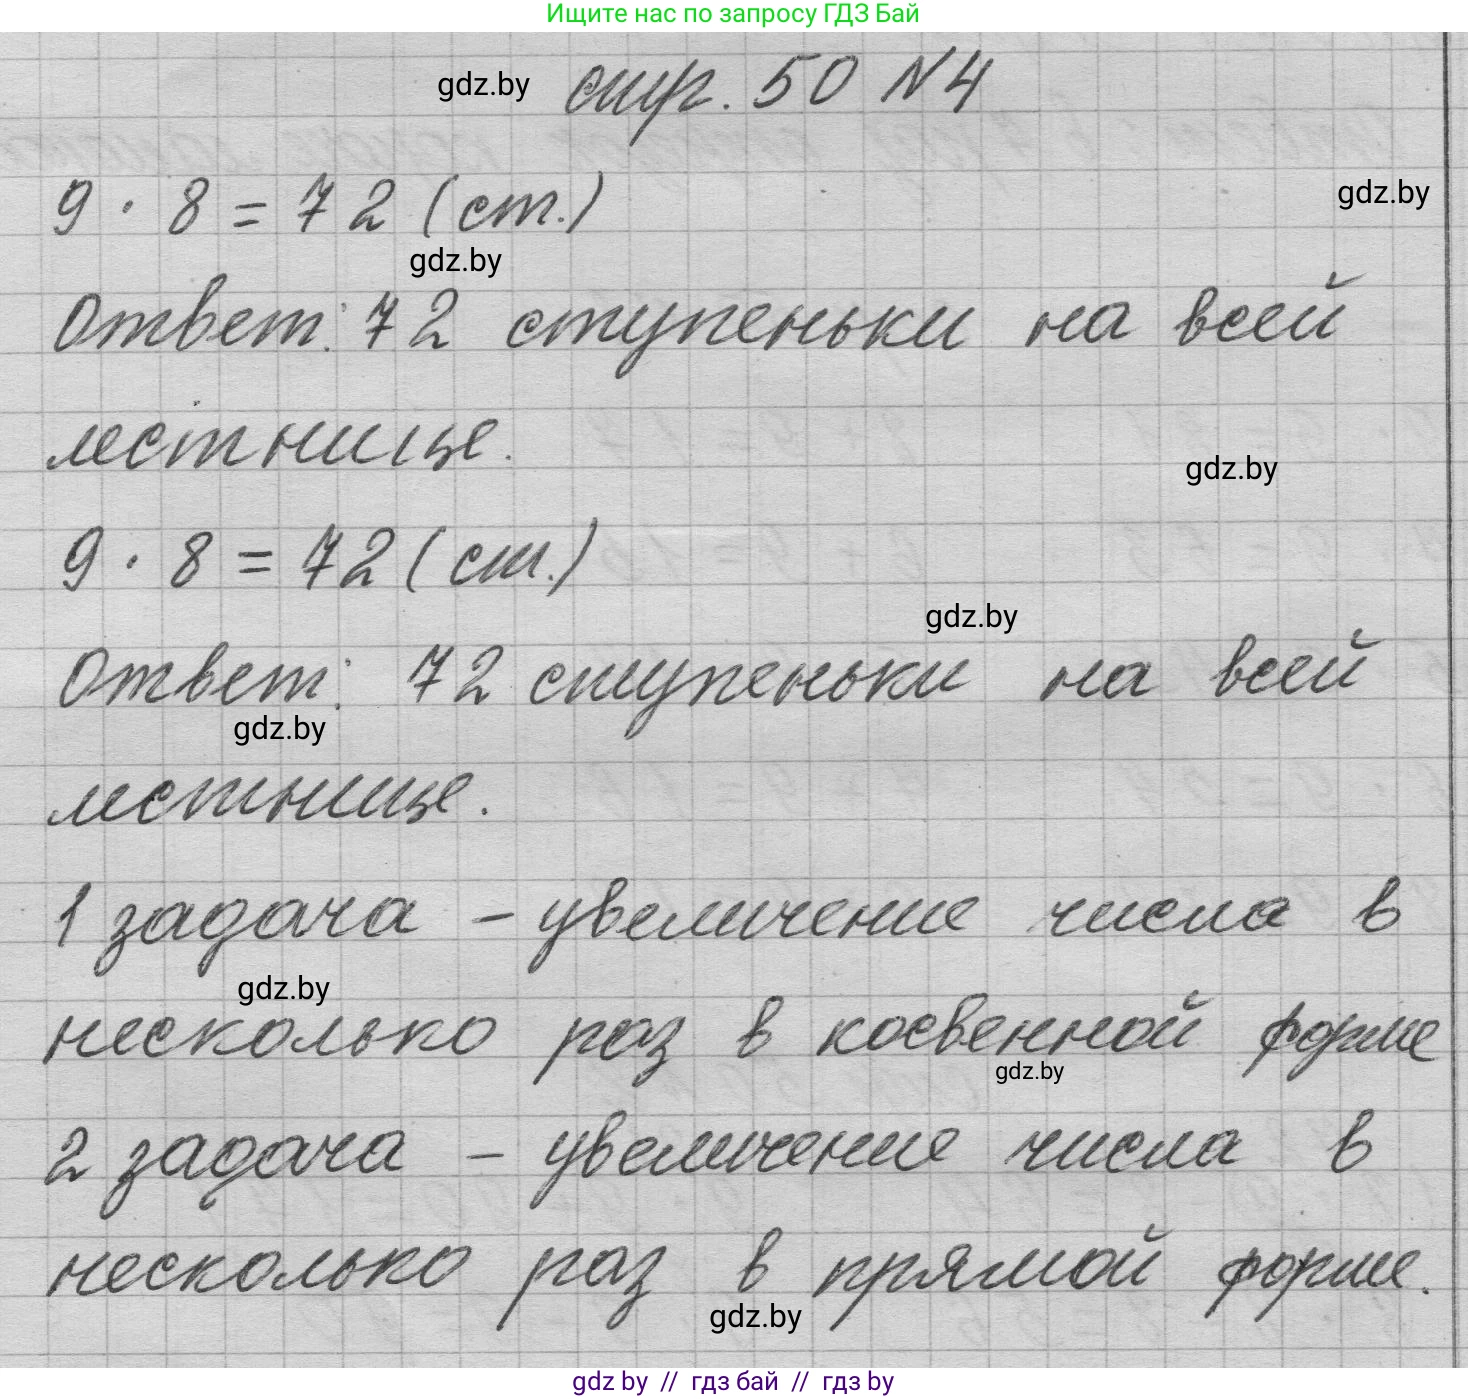 Ищите нас по запросу ГДЗ Бай
gdz.by стр. 50 №4
9 · 8 = 72 (ст.)
gdz.by
gdz.by
Ответ: 72 ступеньки на всей
лестнице.
gdz.by
9 · 8 = 72 (ст.)
gdz.by
Ответ: 72 ступеньки на всей
gdz.by
лестнице.
1 задача – увеличение числа в
gdz.by
несколько раз в косвенной форме
gdz.by
2 задача – увеличение числа в
несколько раз в прямой форме.
gdz.by
gdz by // гдз бай // гдз by